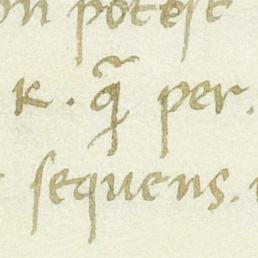 potest
k. q̃ per.
sequens.